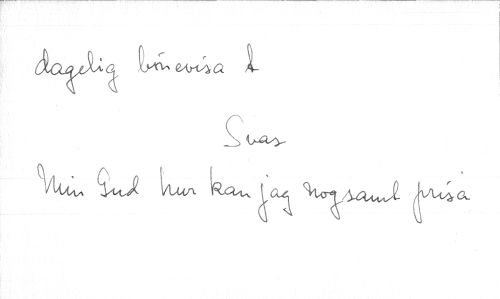 dagelig bönevisa
Svar
Min Gud hur kan jag nogsamt prisa